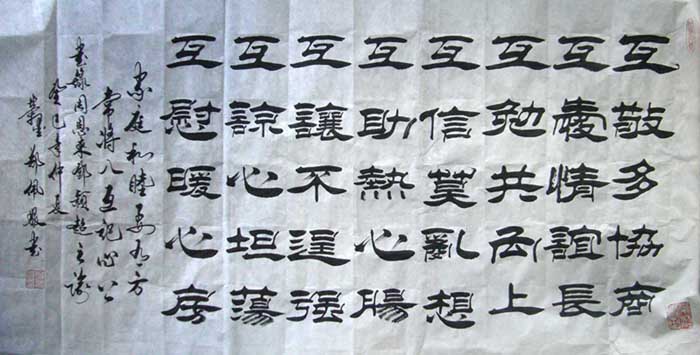 互敬多協商
互愛情誼長
互勉共向上
互信莫亂想
互助熱心腸
互讓不逞強
互諒心坦蕩
互慰暖心房
家庭和睦要有方
常將八互記心上
書錄周恩來鄧穎超之
癸巳年仲夏
鄭佩 書